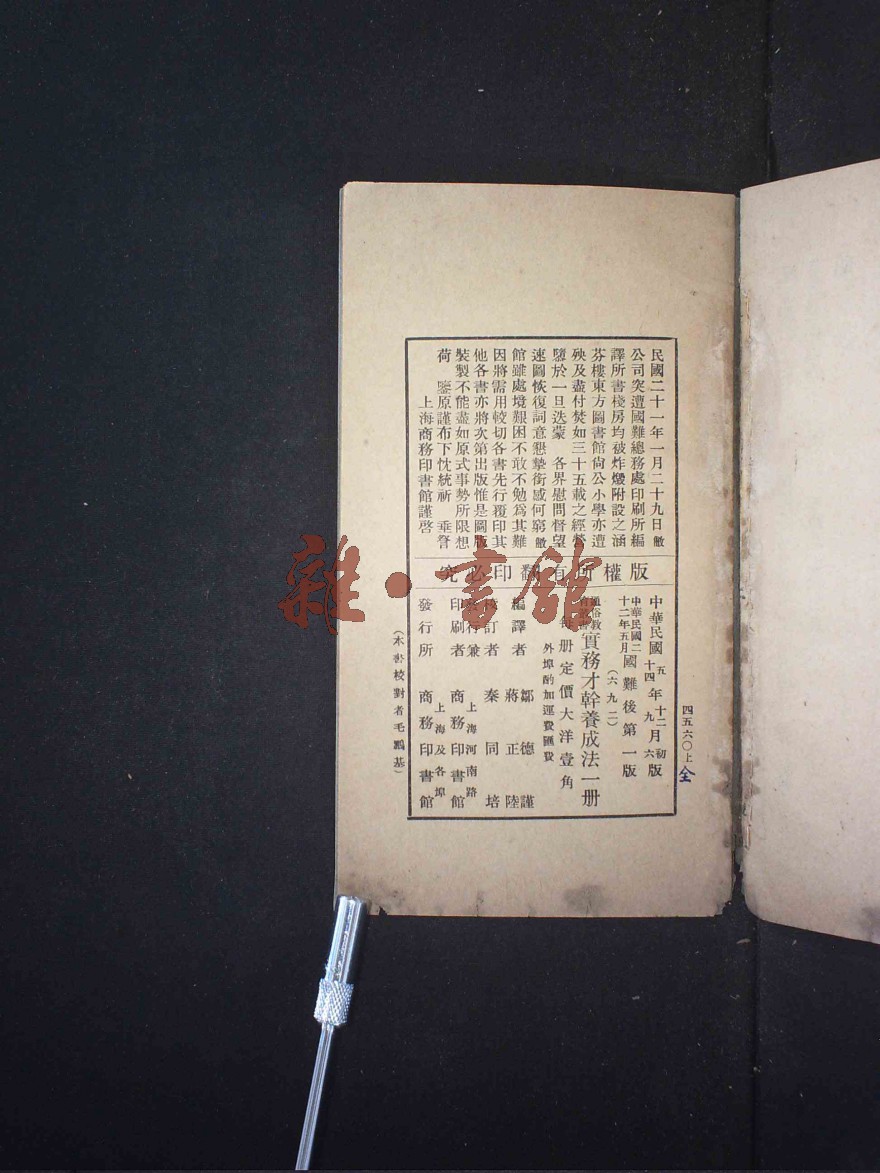 民國二十一年一月二十九日敝
公司突遭國難總務處印刷所編
譯所書棧房均被炸燬附設之涵
芬樓東方圖書館尙公小學亦遭
殃及盡付焚如三十五載之經營
隳於一旦迭蒙　各界慰問督望
速圖恢復詞意懇摯銜感何窮敝
館雖處境艱困不敢不勉爲其難
因將需用較切各書先行覆印其
他各書亦將次第出版惟是圖版
裝製不能盡如原式事勢所限想
荷　鑒原謹布下忱統祈　垂詧
上海商務印書館謹啓
版權所有翻印必究
四五六〇上
全
中華民國五年十二月初版
十四九六
中華民國二十二年五月國難後第一版
(六九二)
通俗教育叢書實務才幹養成法一册
每册定價大洋壹角
外埠酌加運費匯費
編譯者　鄒德謹
蔣正陸
校訂者　秦同培
發行兼印刷者　上海河南路商務印書館
發行所　上海及各埠商務印書館
(本書校對者毛鵬基)
雜·書館